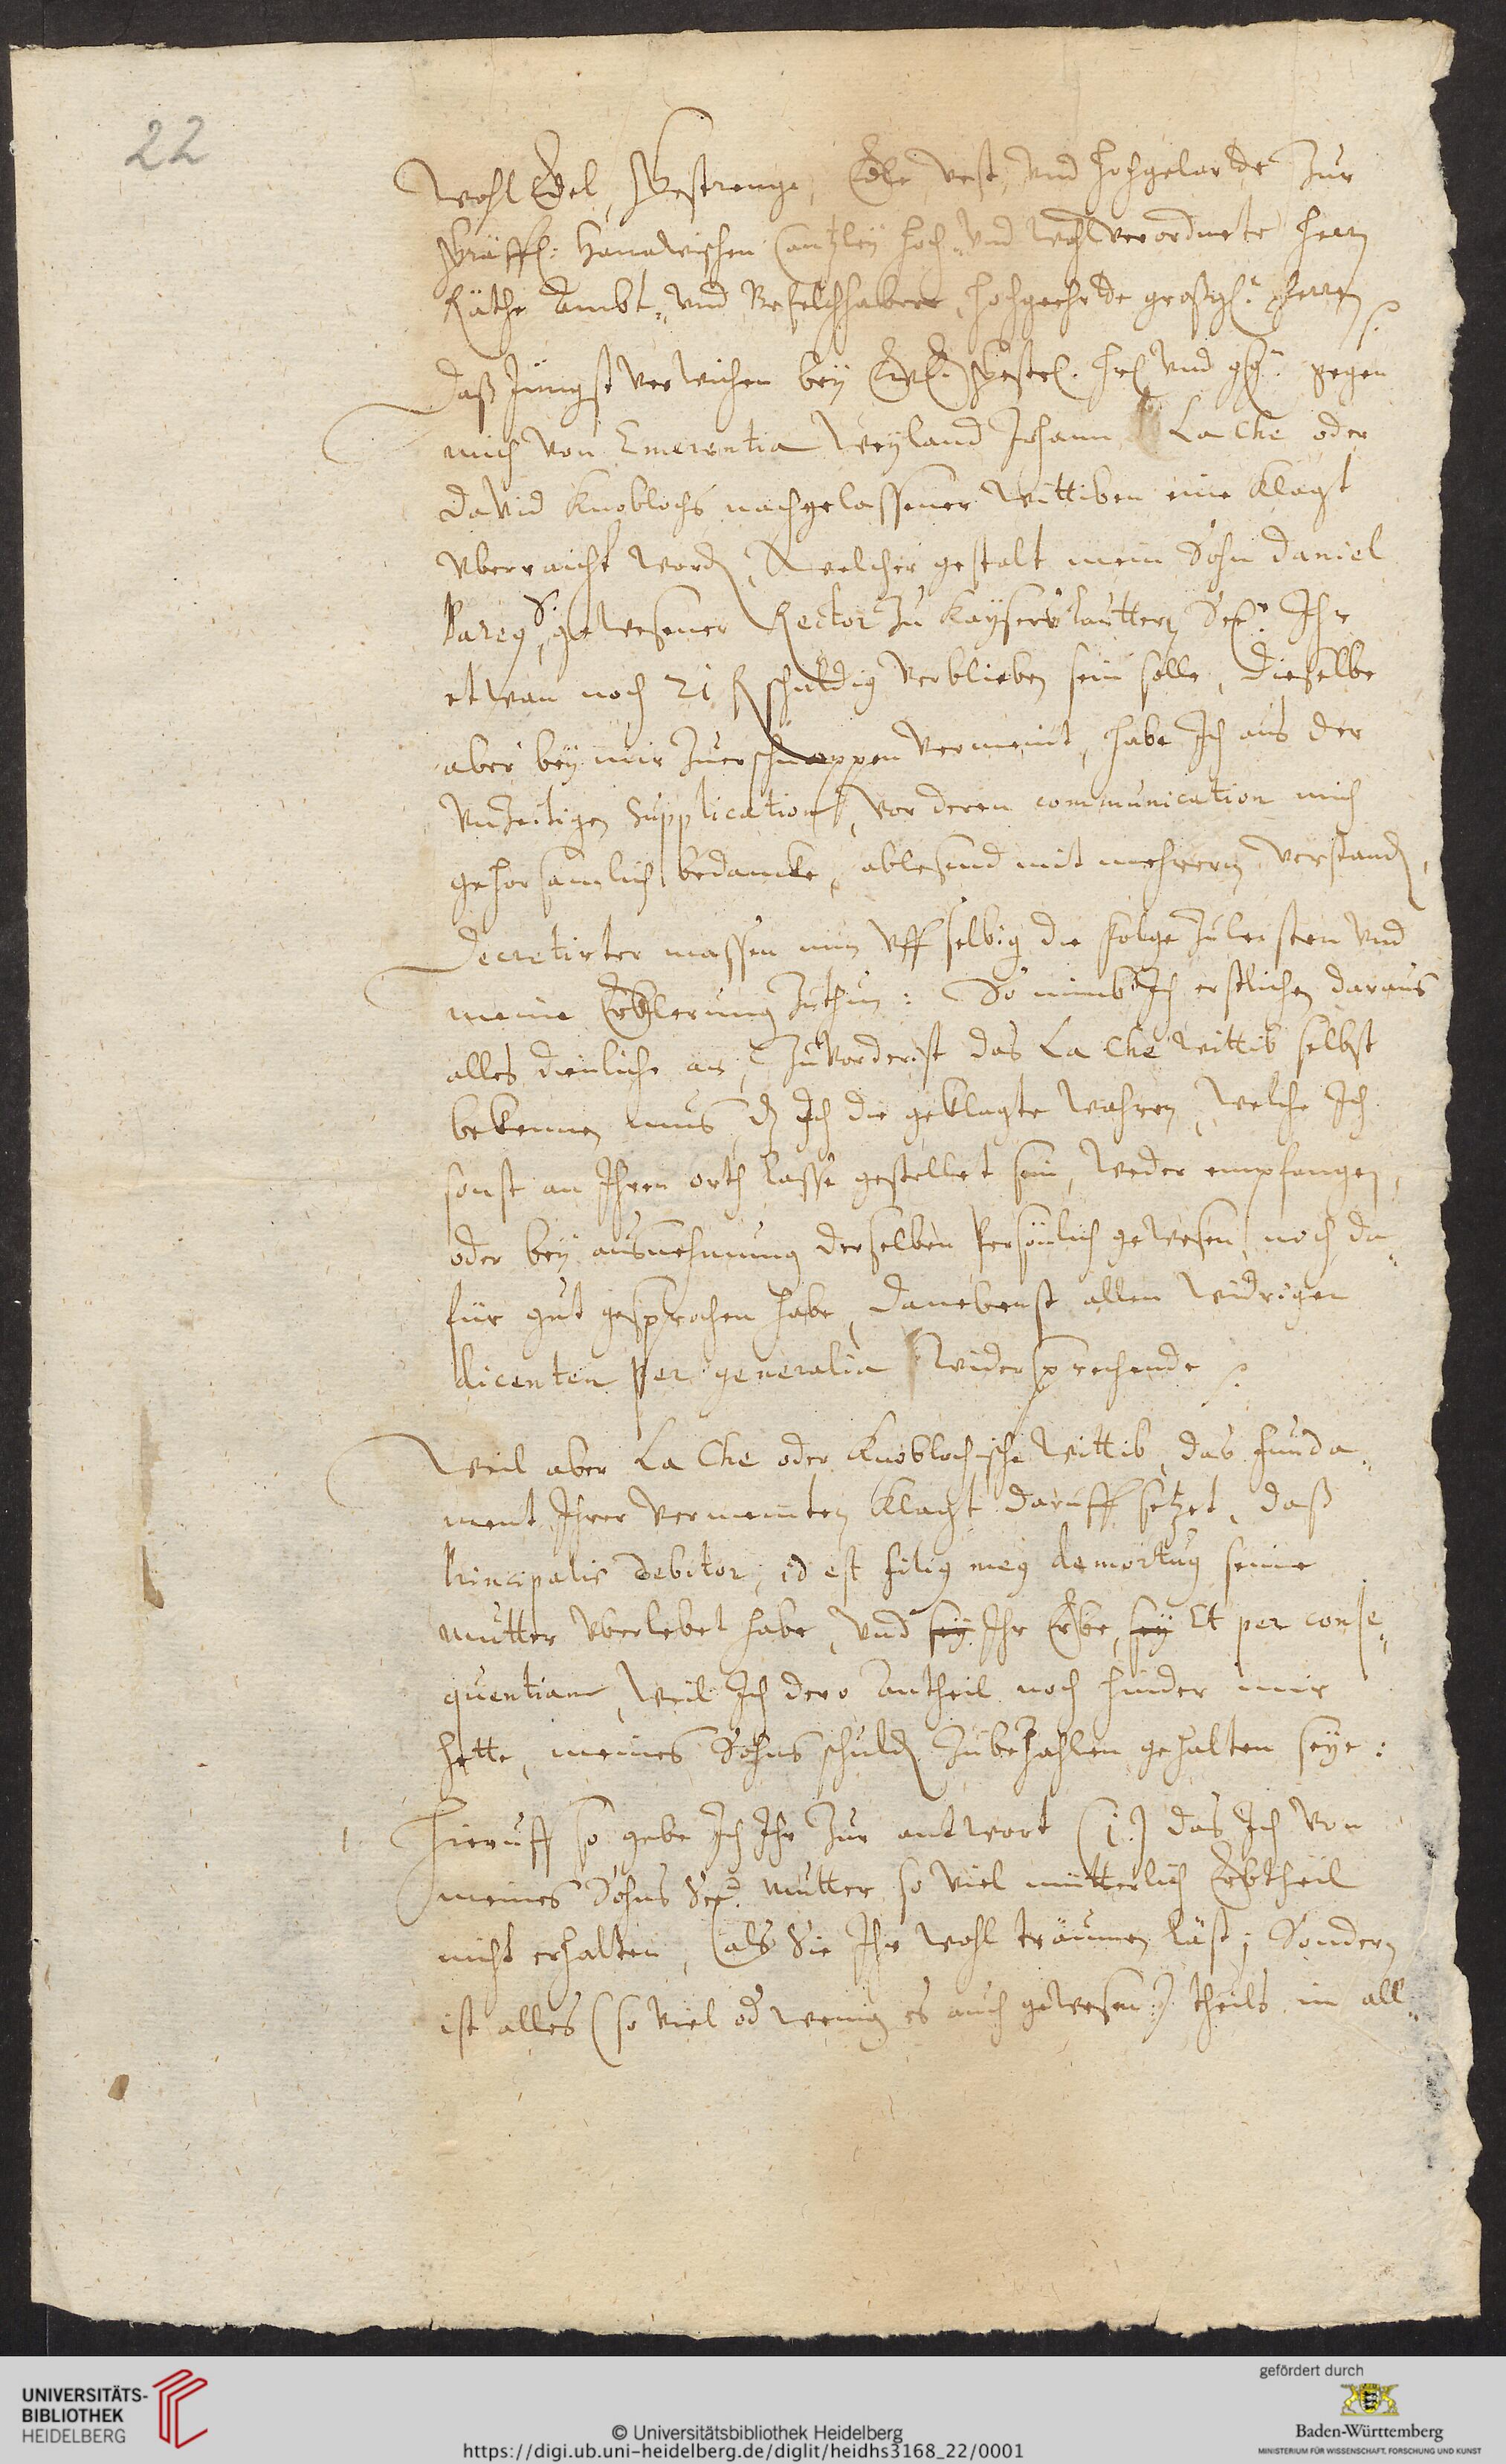 22
Wohl Edel, Gestrenge, Edle, vest, und hochgelarde zur
Gräffl: Hanawischen Cantzley hoch- und wohlverordnete Herrn
Räthe Ambt- und Befelchhabere, hochgeehrde großgl. Herrn
Daß jüngst verwichen bey Gestr. hrl. und gegen
mich von Emerentia weyland Johann La Che oder
David Knoblochs nachgelassener wittiben eine klagt
uberraicht word, welcher gestalt mein Sohn Daniel
Pareg S. gewesener Rector zu Kayserslauttern Sel. Ihr
etwan noch 21 R schuldig verblieben sein solle, dieselbe
aber bey mir zuerschnappen vermeint, habe Ich aus der
unzeitigen Supplication, vor deren communication mich
gehorsamlich bedancke, ablesend mit mehrern verstand,
Decretirter massen nun uff selbig die folge zuleisten und
meine Erklerung zuthun: So nimb Ich erstlichen daraus
alles dienliche an, zuvorderist das La Che wittib selbst
bekennen mus, dz Ich die geklagte wahren, welche Ich
sonst an Ihren orth lasse gestellet sein, weder empfangen,
oder bey ausnehmung derselben Persönlich gewesen, noch da-
für gut gesprochen habe, danebenst allen widrigen
dicenten per generalia widersprechende
Weil aber La Che oder Knoblochische wittib, das funda-
ment Ihrer vermeinten klagt daruff setzet, daß
Principalis debitor, id est filig meg demortug seine
mutter uberlebet habe, und sey Ihr Erbe, sey Et per conse-
quentiam, weil Ich dero antheil noch hinder mir
hette, meines Sohns schuld zubezahlen gehalten seye:
1. Hieruff so gebe Ich Ihr zur antwort (1.) das Ich von
meines Sohns Sel. mutter so viel mütterlich Erbtheil
nicht erhalten, (als Sie Ihr wohl träumen läst; Sondern
ist alles (so viel od wenig es auch gewesen:) theils in all-
UNIVERSITÄTS-
BIBLIOTHEK
HEIDELBERG
© Universitätsbibliothek Heidelberg
https://digi.ub.uni-heidelberg.de/diglit/heidhs3168_22/0001
gefördert durch
Baden-Württemberg
MINISTERIUM FÜR WISSENSCHAFT, FORSCHUNG UND KUNST